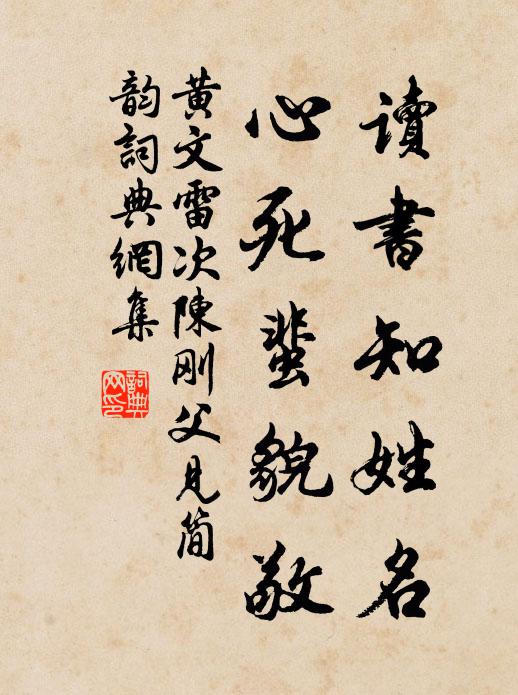 讀書知姓名
心死蜚貌敬
黃文雷次陳剛父見簡
韵詞典網集
詞典網印